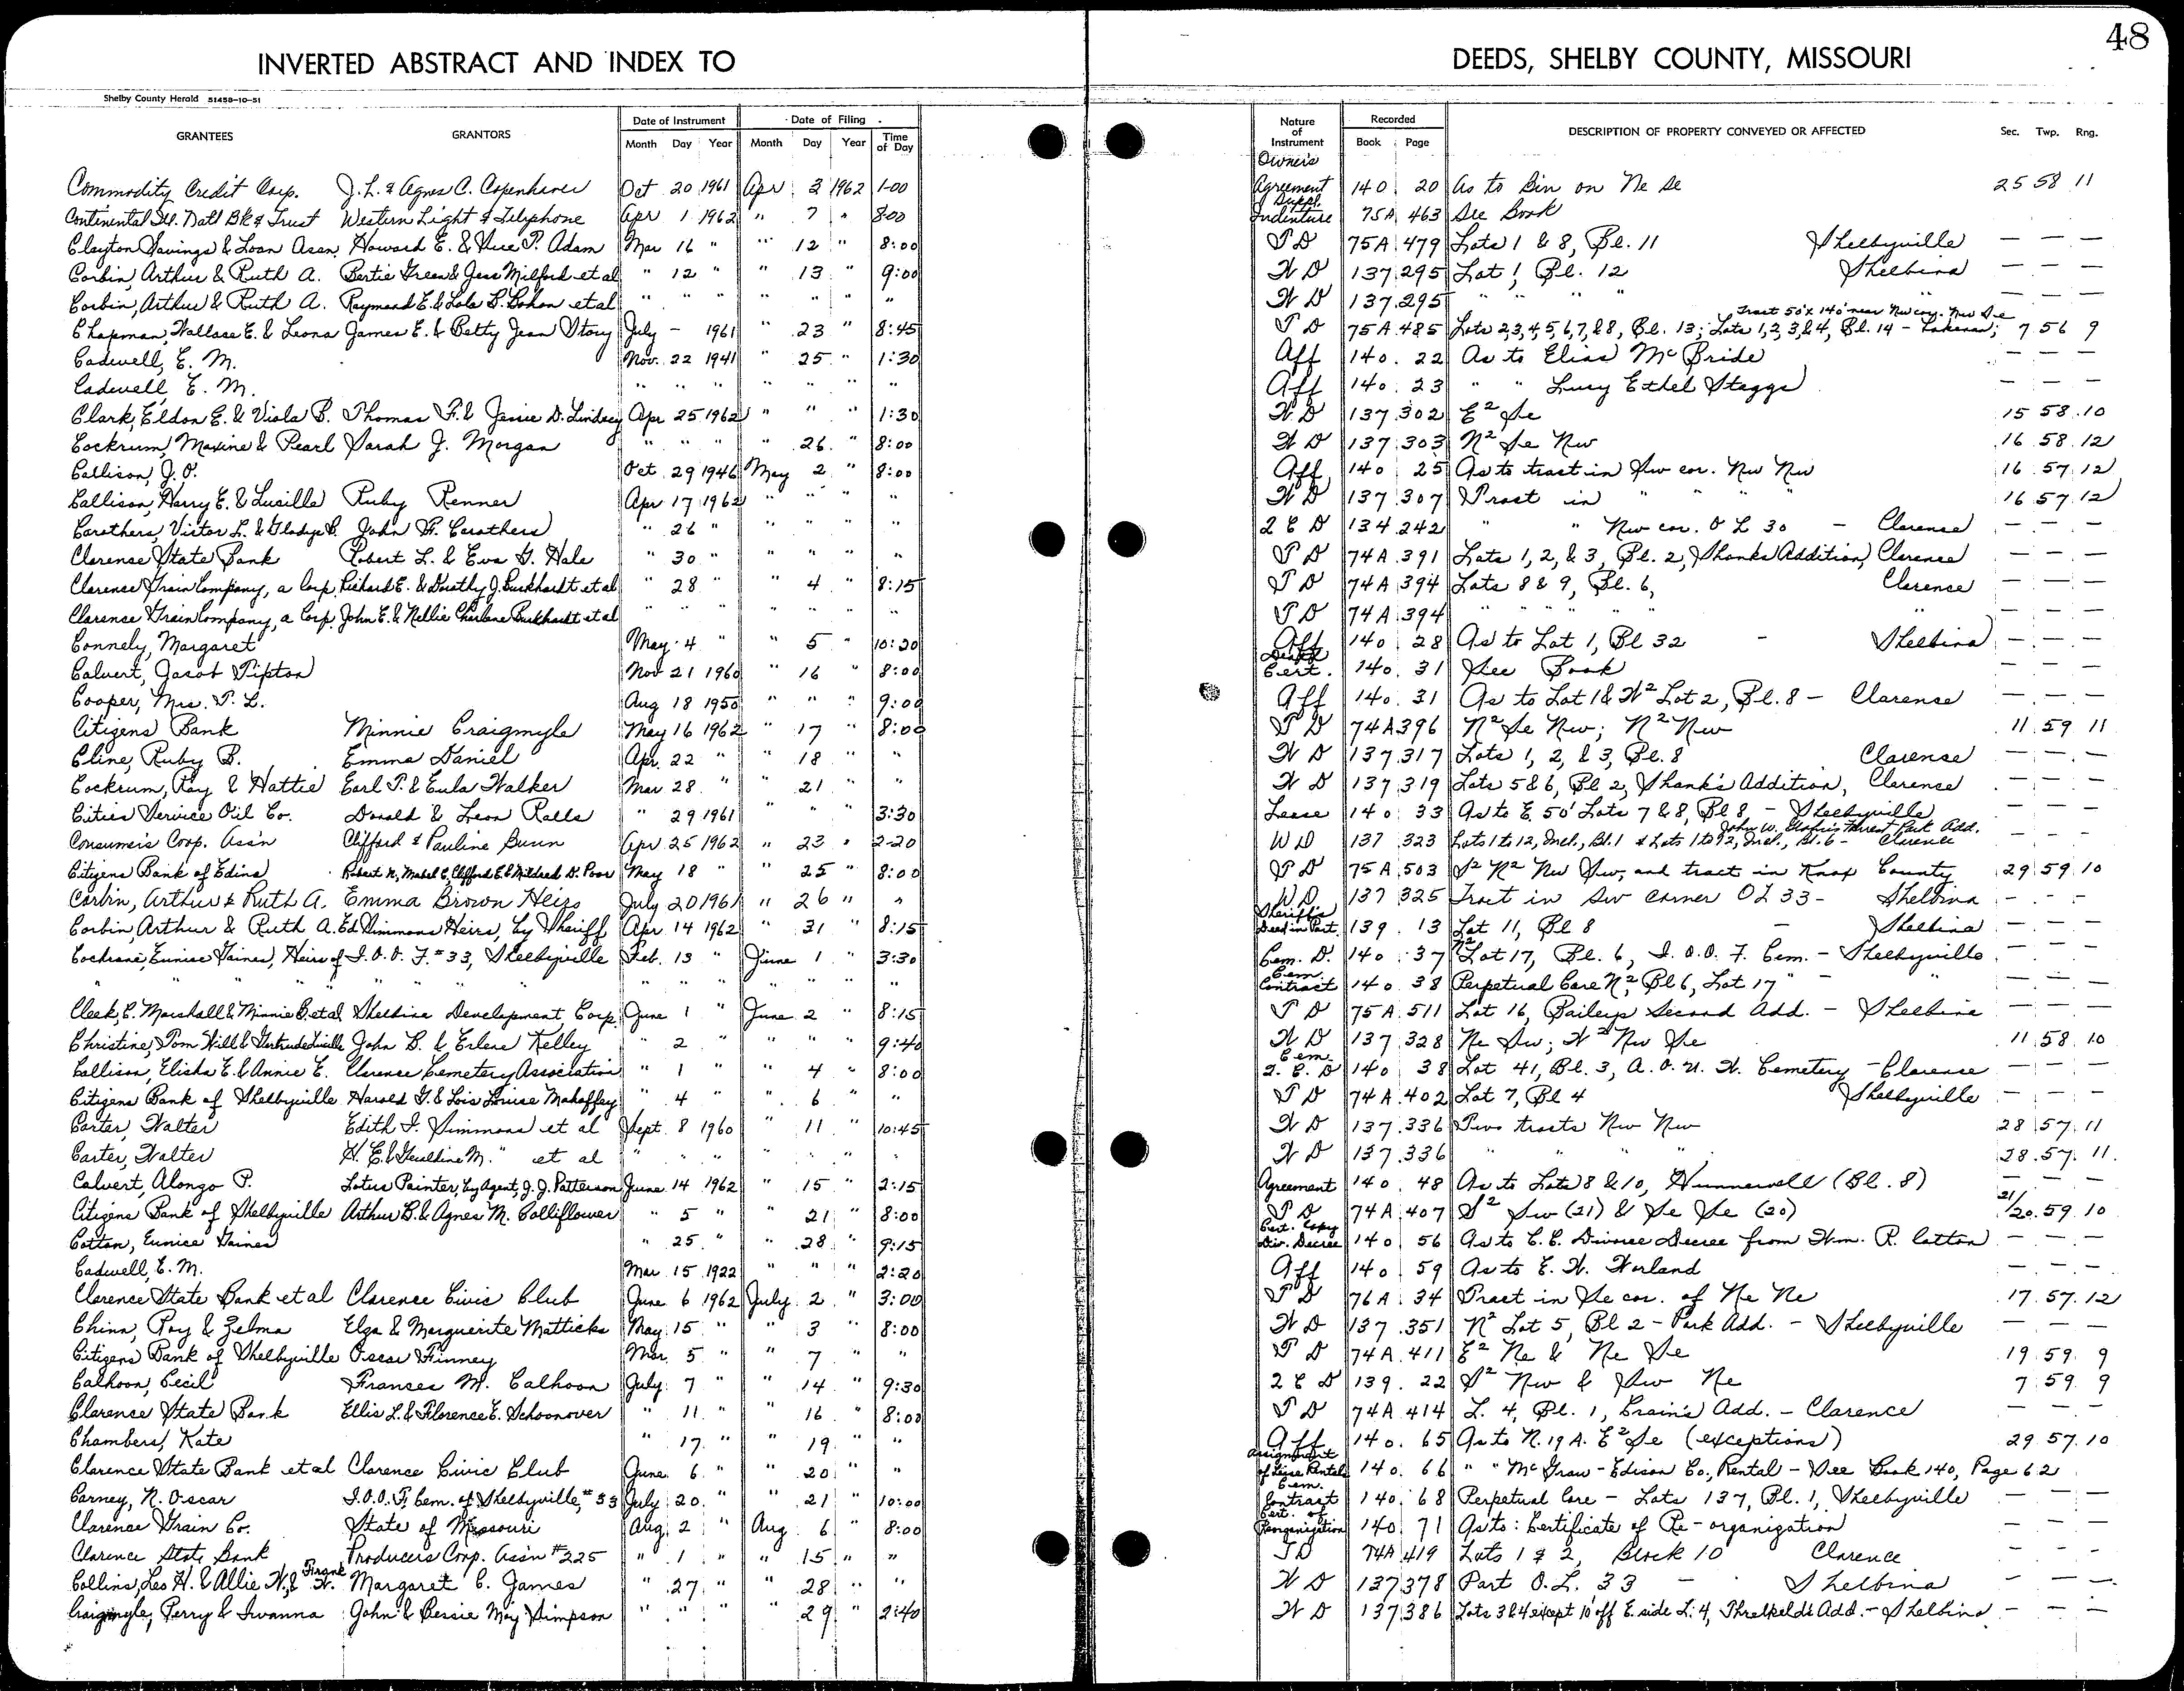 48
INVERTED ABSTRACT AND INDEX TO DEEDS, SHELBY COUNTY, MISSOURI
Shelby County Herald 51458-10-51
GRANTEES GRANTORS Date of Instrument Date of Filing Nature of Instrument Recorded DESCRIPTION OF PROPERTY CONVEYED OR AFFECTED Sec. Twp. Rng.
Month Day Year Month Day Year Time of Day Book Page
Commodity Credit Corp. J. L. & Agnes C. Copenhaver Oct 20 1961 Apr 2 1962 1-00 Owner's Agreement 140 20 As to Bin on Ne Se 25 58 11
Continental Ill. Natl Bk & Trust Western Light & Telephone Apr 1 1962 " 7 " 8:00 Suppl. Indenture 75A 463 See Book
Clayton Savings & Loan Assn. Howard E. & P. Adam Mar 16 " " 12 " 8:00 T D 75A 479 Lots 1 & 8, Bl. 11 Shelbyville — — —
Corbin, Arthur & Ruth A. Bertie Green & Jess Milford et al " 12 " " 13 " 9:00 W D 137 295 Lot 1, Bl. 12 Shelbina — — —
Corbin, Arthur & Ruth A. Raymond E. & Lola B. Bohon et al " " " " " " " W D 137 295 " " " " — — —
Chapman, Wallace E. & Leona James E. & Betty Jean Story July – 1961 " 23 " 8:45 T D 75A 485 Lots 2,3,4,5,6,7,&8, Bl. 13; Lots 1,2,3,&4, Bl. 14 – Lakenan; Tract 50' x 140' near Nw cor. Nw Se 7 56 9
Cadwell, E. M. Nov. 22 1941 " 25 " 1:30 Aff 140 22 As to Elias McBride — — —
Cadwell, E. M. " " " " " " " Aff 140 23 " " Lucy Ethel Staggs — — —
Clark, Eldon E. & Viola B. Thomas F. & Jessie D. Lindsey Apr 25 1962 " " " 1:30 W D 137 302 E² Se 15 58 10
Cockrum, Maxine & Pearl Sarah J. Morgan " " " " 26 " 8:00 W D 137 303 N² Se Nw 16 58 12
Callison, J. O. Oct 29 1946 May 2 " 8:00 Aff 140 25 As to tract in Sw cor. Nw Nw 16 57 12
Callison, Harry E. & Lucille Ruby Renner Apr 17 1962 " " " " W D 137 307 Tract in " " " " 16 57 12
Carothers, Victor L. & Gladys B. John F. Carothers " 26 " " " " " 2 C D 134 242 " " Nw cor. O L 30 – Clarence — — —
Clarence State Bank Robert L. & Eva G. Hale " 30 " " " " " T D 74A 391 Lots 1, 2, & 3, Bl. 2, Shanks Addition, Clarence — — —
Clarence Grain Company, a Corp. Richard E. & Dorothy J. Burkhardt et al " 28 " " 4 " 8:15 T D 74A 394 Lots 8 & 9, Bl. 6, Clarence — — —
Clarence Grain Company, a Corp. John E. & Nellie Charlene Burkhardt et al " " " " " " " T D 74A 394 " " " " " — — —
Connely, Margaret May 4 " " 5 " 10:30 Aff 140 28 As to Lot 1, Bl 32 – Shelbina — — —
Calvert, Jacob Tipton Nov 21 1960 " 16 " 8:00 Death Cert. 140 31 See Book — — —
Cooper, Mrs. T. L. Aug 18 1950 " " " 9:00 Aff 140 31 As to Lot 1 & W² Lot 2, Bl. 8 – Clarence — — —
Citizens Bank Minnie Craigmyle May 16 1962 " 17 " 8:00 T D 74A 396 N² Se Nw; N² Nw 11 59 11
Cline, Ruby B. Emma Daniel Apr. 22 " " 18 " " W D 137 317 Lots 1, 2, & 3, Bl. 8 Clarence — — —
Cockrum, Roy & Hattie Earl T. & Eula Walker Mar 28 " " 21 " " W D 137 319 Lots 5 & 6, Bl 2, Shank's Addition, Clarence — — —
Cities Service Oil Co. Donald & Leon Ralls " 29 1961 " " " 3:30 Lease 140 33 As to E. 50' Lots 7 & 8, Bl 8, – Shelbyville — — —
Consumers Coop. Assn Clifford & Pauline Bunn Apr 25 1962 " 23 " 2-20 W D 137 323 Lots 1 to 12, Incl., Bl. 1 & Lots 1 to 12, Incl., Bl. 6 – John W. Forest Park Add. Clarence — — —
Citizens Bank of Edina Robert N., Mabel C., Clifford E. & Mildred D. Poor May 18 " " 25 " 8:00 T D 75A 503 S² N² Nw Sw, and tract in Knox County 29 59 10
Corbin, Arthur & Ruth A. Emma Brown Heirs July 20 1961 " 26 " " W.D. 137 325 Tract in Sw corner OL 33 – Shelbina — — —
Corbin, Arthur & Ruth A. Ed Simmons Heirs, by Sheriff Apr 14 1962 " 31 " 8:15 Sheriff's Deed in Part. 139 13 Lot 11, Bl 8 – Shelbina — — —
Cochrane, Eunice Gaines, Heirs of I.O.O.F. #33, Shelbyville Feb. 13 " June 1 " 3:30 Cem. D. 140 37 N² Lot 17, Bl. 6, I.O.O.F. Cem. – Shelbyville — — —
" " " " " " " " " " " " " " " Cem. Contract 140 38 Perpetual Care N², Bl 6, Lot 17 " — — —
Cleek, C. Marshall & Minnie B. et al Shelbina Development Corp. June 1 " June 2 " 8:15 T D 75A 511 Lot 16, Baileys Second Add. – Shelbina — — —
Christine, Tom Will & Gertrude Lucille John B. & Erlene Kelley " 2 " " " " 9:40 W D 137 328 Ne Sw; W² Nw Se 11 58 10
Callison, Elisha E. & Annie E. Clarence Cemetery Association " 1 " " 4 " 8:00 Cem. Q. C. D 140 38 Lot 41, Bl. 3, A. O. U. W. Cemetery – Clarence — — —
Citizens Bank of Shelbyville Harold G. & Lois Louise Mahaffey " 4 " " 6 " " T D 74A 402 Lot 7, Bl 4 Shelbyville — — —
Carter, Walter Edith I. Simmons et al Sept. 8 1960 " 11 " 10:45 W D 137 336 Two tracts Nw Nw 28 57 11
Carter, Walter H. E. & Geraldine M. " et al " " " " " " " W D 137 336 " " " " 28 57 11
Calvert, Alonzo P. Lotus Painter, by Agent, J. J. Patterson June 14 1962 " 15 " 2:15 Agreement 140 48 As to Lots 8 & 10, Hunnewell (Bl. 8) — — —
Citizens Bank of Shelbyville Arthur B. & Agnes M. Colliflower " 5 " " 21 " 8:00 T D 74A 407 S² Sw (21) & Se Se (20) 21/20 59 10
Cotton, Eunice Gaines " 25 " " 28 " 9:15 Cert. Copy Div. Decree 140 56 As to C. C. Divorce Decree from Wm. R. Cotton — — —
Cadwell, E. M. Mar 15 1922 " " " 2:20 Aff 140 59 As to E. W. Worland — — —
Clarence State Bank et al Clarence Civic Club June 6 1962 July 2 " 3:00 T D 76A 34 Tract in Se cor. of Ne Ne 17 57 12
Chinn, Roy & Zelma Elza & Marguerite Matticks May 15 " " 3 " 8:00 W D 137 351 N² Lot 5, Bl 2 – Park Add. – Shelbyville — — —
Citizens Bank of Shelbyville Oscar Finney Mar. 5 " " 7 " " T D 74A 411 E² Ne & Ne Se 19 59 9
Calhoon, Cecil Frances M. Calhoon July 7 " " 14 " 9:30 2 C D 139 22 S² Nw & Sw Ne 7 59 9
Clarence State Bank Ellis L. & Florence E. Schoonover " 11 " " 16 " 8:00 T D 74A 414 L. 4, Bl. 1, Crain's Add. – Clarence — — —
Chambers, Kate " 17 " " 19 " " Aff 140 65 As to N. 19 A. E² Se (exceptions) 29 57 10
Clarence State Bank et al Clarence Civic Club June 6 " " 20 " " Assignment of Lease Rentals 140 66 " " McGraw-Edison Co., Rental – See Book 140, Page 62
Carney, N. Oscar I.O.O.F. Cem. of Shelbyville, #33 July 20 " " 21 " 10:00 Cem. Contract 140 68 Perpetual Care – Lots 137, Bl. 1, Shelbyville — — —
Clarence Grain Co. State of Missouri Aug. 2 " Aug 6 " 8:00 Cert. of Reorganization 140 71 As to: Certificate of Re-organization — — —
Clarence State Bank Producers Corp. Assn #225 " 1 " " 15 " " T D 74A 419 Lots 1 & 2, Block 10 Clarence — — —
Collins, Leo H. & Allie W., & Frank W. Margaret C. James " 27 " " 28 " " W D 137 378 Part O. L. 33 – Shelbina — — —
Craigmyle, Perry & Iwanna John & Bessie May Simpson " " " " 29 " 2:40 W D 137 386 Lots 3 & 4 except 10' off E. side L. 4, Threlkelds Add. – Shelbina — — —